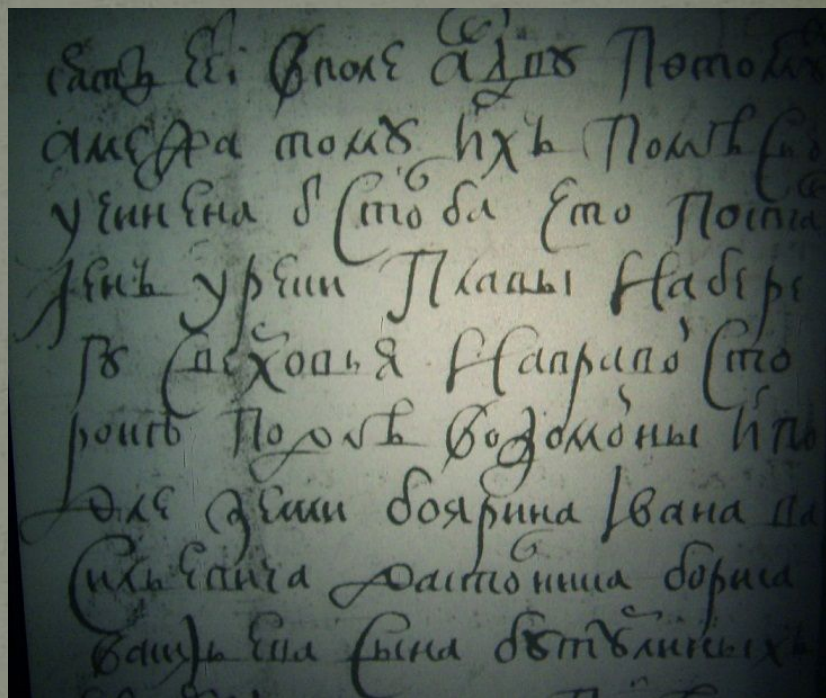 в поле а в дву потому
а межа тому ихъ поместью
учинена ѿ столба что поста
ленъ у реки Плавы на бере
гу с верховья направо сто
роне подле водомоины и по
дле земли боярина Ивана ва
сильевича да столника бориса
васильева сына бутурлиныхъ